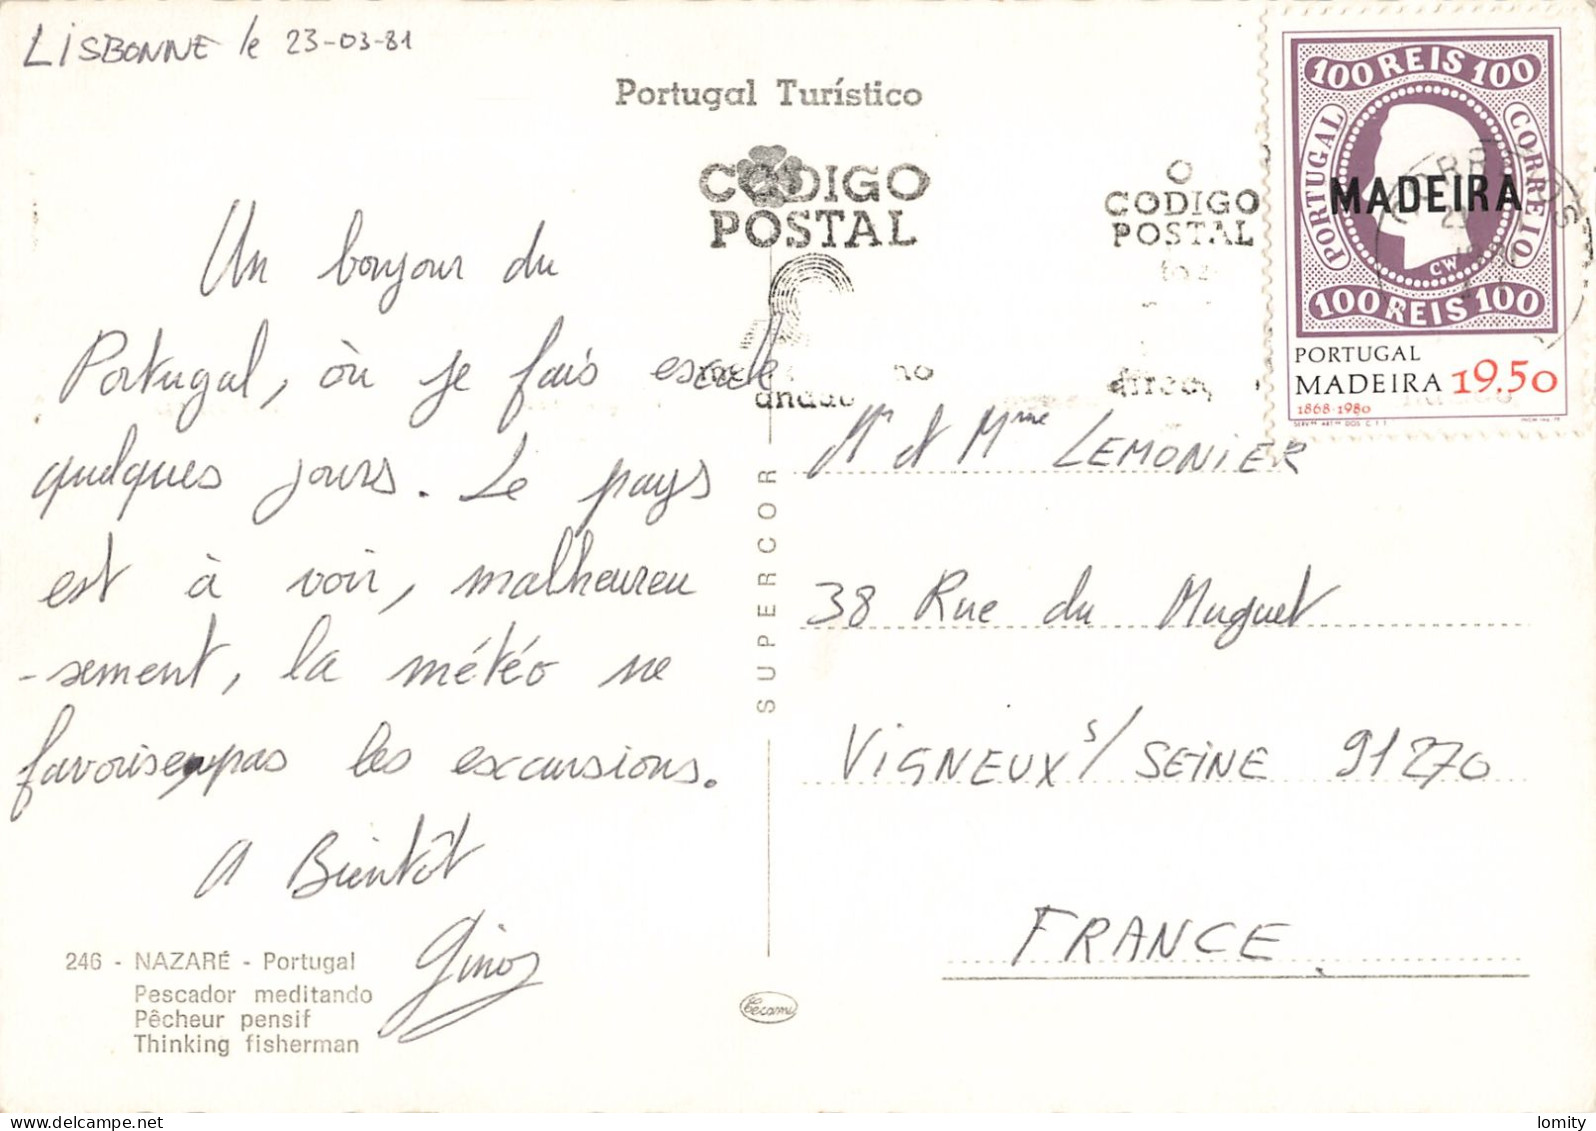 LISBONNE le 23-03-81
Portugal Turístico
CÓDIGO
POSTAL
O
CODIGO
POSTAL
100 REIS 100
PORTUGAL
CORREIO
MADEIRA
CW
100 REIS 100
PORTUGAL
MADEIRA 19.50
1868-1980
Un bonjour du
Portugal, où je fais escale
quelques jours. Le pays
est à voir, malheureu
-sement, la météo ne
favorise pas les excursions.
A Bientôt
Ginos
Mr et Mme LEMONIER
38 Rue du Muguet
VIGNEUX s/ SEINE 91270
FRANCE
SUPERCOR
246 - NAZARÉ - Portugal
Pescador meditando
Pêcheur pensif
Thinking fisherman
Cecami
lomity